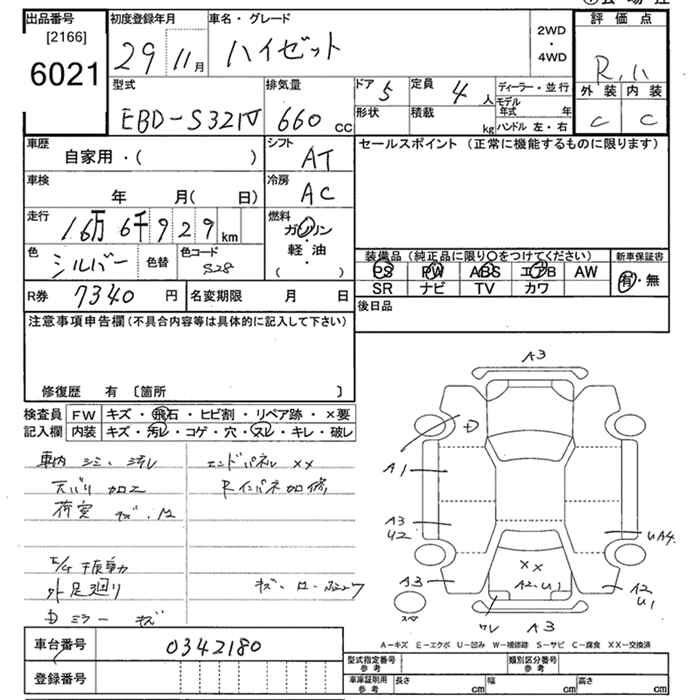 出品番号
[2166]
6021
初度登録年月
29 11月
車名・グレード
ハイゼット
2WD
・
4WD
評価点
R
外装 内装
C C
型式
EBD-S321V
排気量
660 CC
ドア 5
形状
定員 4 人
積載 kg
ディーラー・並行
モデル年式 年
ハンドル 左・右
車歴
自家用・( )
シフト
AT
セールスポイント (正常に機能するものに限ります)
車検
年 月( 日)
冷房
AC
走行
16万 6千 9 2 9 km
燃料
ガソリン
軽・油
( ・ )
色
シルバー
色替
色コード
S28
装備品 (純正品に限り○をつけてください)
PS PW ABS エアB AW
SR ナビ TV カワ
新車保証書
有・無
R券 7340 円
名変期限 月 日
後日品
注意事項申告欄 (不具合内容等は具体的に記入して下さい)
修復歴 有 〔箇所 〕
検査員 FW キズ・飛石・ヒビ割・リペア跡・×要
記入欄 内装 キズ・汚レ・コゲ・穴・スレ・キレ・破レ
車内 シミ・汚レ
エンドパネル ××
加工
加修
荷室
外 足廻り
ミラー キズ
A3
A1
A3
U2
A3
××
A2 U1
UA4
A2
U1
ワレ A3
スペ
A-キズ E-エクボ U-凹み W-補修跡 S-サビ C-腐食 XX-交換済
車台番号 0342180
登録番号
型式指定番号
参考
類別区分番号
参考
車庫証明用
参考
長さ cm 幅 cm 高さ cm